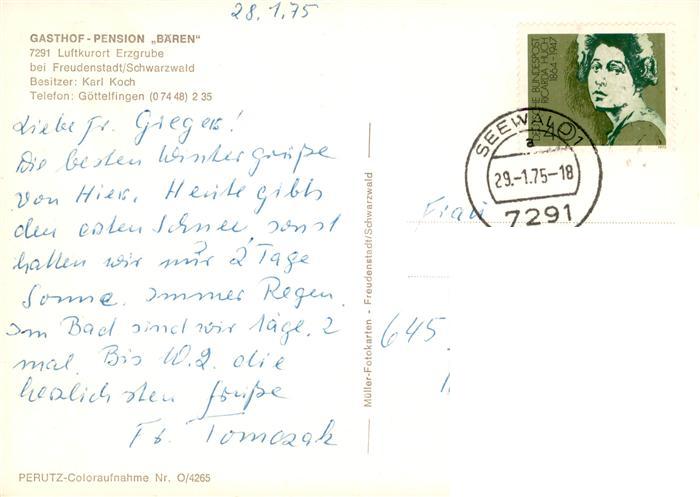 28.1.75
GASTHOF-PENSION „BÄREN"
7291 Luftkurort Erzgrube
bei Freudenstadt/Schwarzwald
Besitzer: Karl Koch
Telefon: Göttelfingen (0 74 48) 2 35
Liebe Fr. Giegers!
Die besten Wintergrüße
von Hier. Heute gibts
den ersten Schnee, sonst
hatten wir nur 2 Tage
Sonne. immer Regen.
Im Bad sind wir täge. 2
mal. Bis 10.2. die
herzlichsten Grüße
Fr. Tomczak
PERUTZ-Coloraufnahme Nr. O/4265
Müller-Fotokarten - Freudenstadt/Schwarzwald
DEUTSCHE BUNDESPOST
RICARDA HUCH
1864-1947
40
SEEWALD 1
a
29.-1.75-18
7291
Frau
645